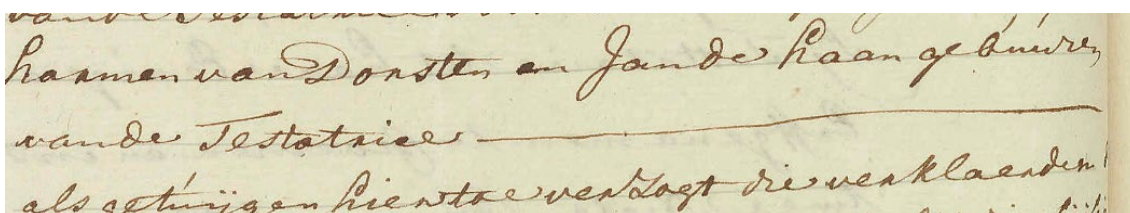 vande Testatrice
harmen van Dorsten en Jan de haan gebuuren
vande Testatrice
als getuijgen hiertoe verzogt die verklaerden